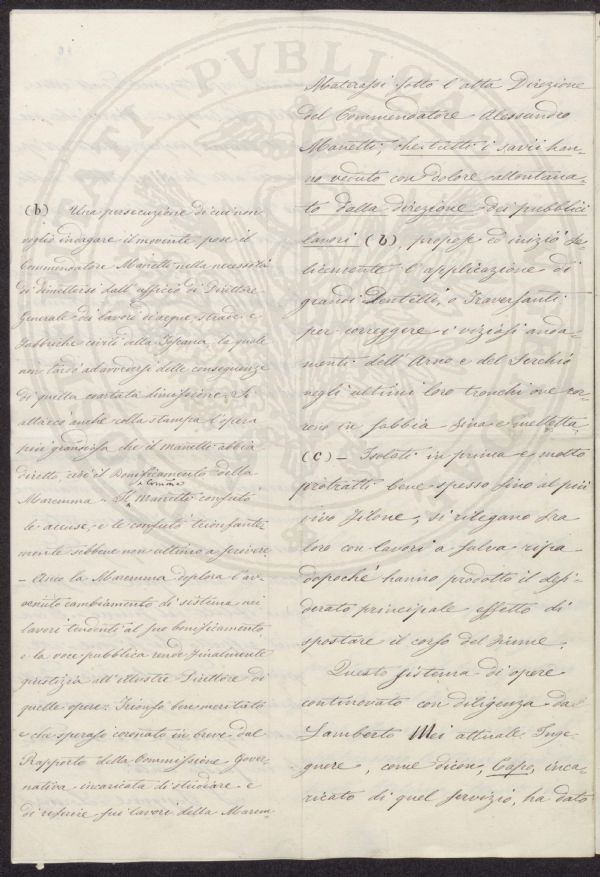 Materassi sotto l'alta Direzione
del Commendatore Alessandro
Manetti, che tutti i savii han-
no veduto con dolore allontana-
to dalla direzione dei pubblici
lavori (b), propose ed iniziò fe-
licemente l'applicazione di
grandi Dentelli, o Traversanti
per correggere i viziosi anda-
menti dell'Arno e del Serchio
negli ultimi loro tronchi ove cor-
rono in sabbia fina e melletta
(c) - Isolati in prima e molto
protratti bene spesso fino al più
vivo filone, si rilegano fra
loro con lavori a salva ripa
dopoché hanno prodotto il desi-
derato principale effetto di
spostare il corso del fiume.
Questo sistema di opere
continovato con diligenza da
Lamberto Mei attuale Inge-
gnere, come dicon, Capo, inca-
ricato di quel servizio, ha dato
(b) Una persecuzione di cui non
voglio indagare il movente pose il
Commendatore Manetti nella necessità
di dimettersi dall'officio di Direttore
Generale dei lavori d'acque, strade e
Fabbriche civili della Toscana, la quale
non tardò ad avvedersi delle conseguenze
di questa coartata dimissione. Si
attaccò anche colla stampa l'opera
più grandiosa che il Manetti abbia
diretto, cioè il Bonificamento della
Maremma - Il Manetti confutò
le accuse, e le confutò trionfante-
mente sibbene non ultimo a scrivere
- Anco la Maremma deplora l'av-
venuto cambiamento di sistema nei
lavori tendenti al suo bonificamento,
e la voce pubblica rende finalmente
giustizia all'illustre Direttore di
quelle opere: Trionfo ben meritato
e che sperasi coronato in breve dal
Rapporto della Commissione Gover-
nativa incaricata di studiare e
di referire sui lavori della Marem-
PUBLICAE